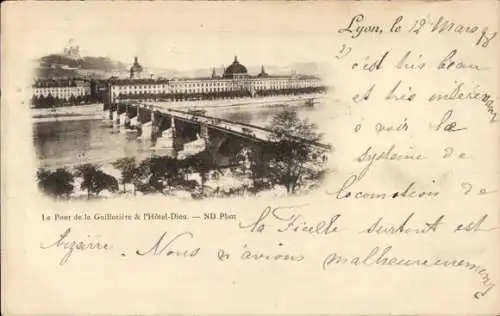 Lyon, le 12 Mars 98
c'est très beau
et très intéressant
à voir le
système de
locomotion de
Le Pont de la Guillotière & l'Hôtel-Dieu. — ND Phot
la Ficelle surtout est
bizarre. Nous n'avions malheureusement